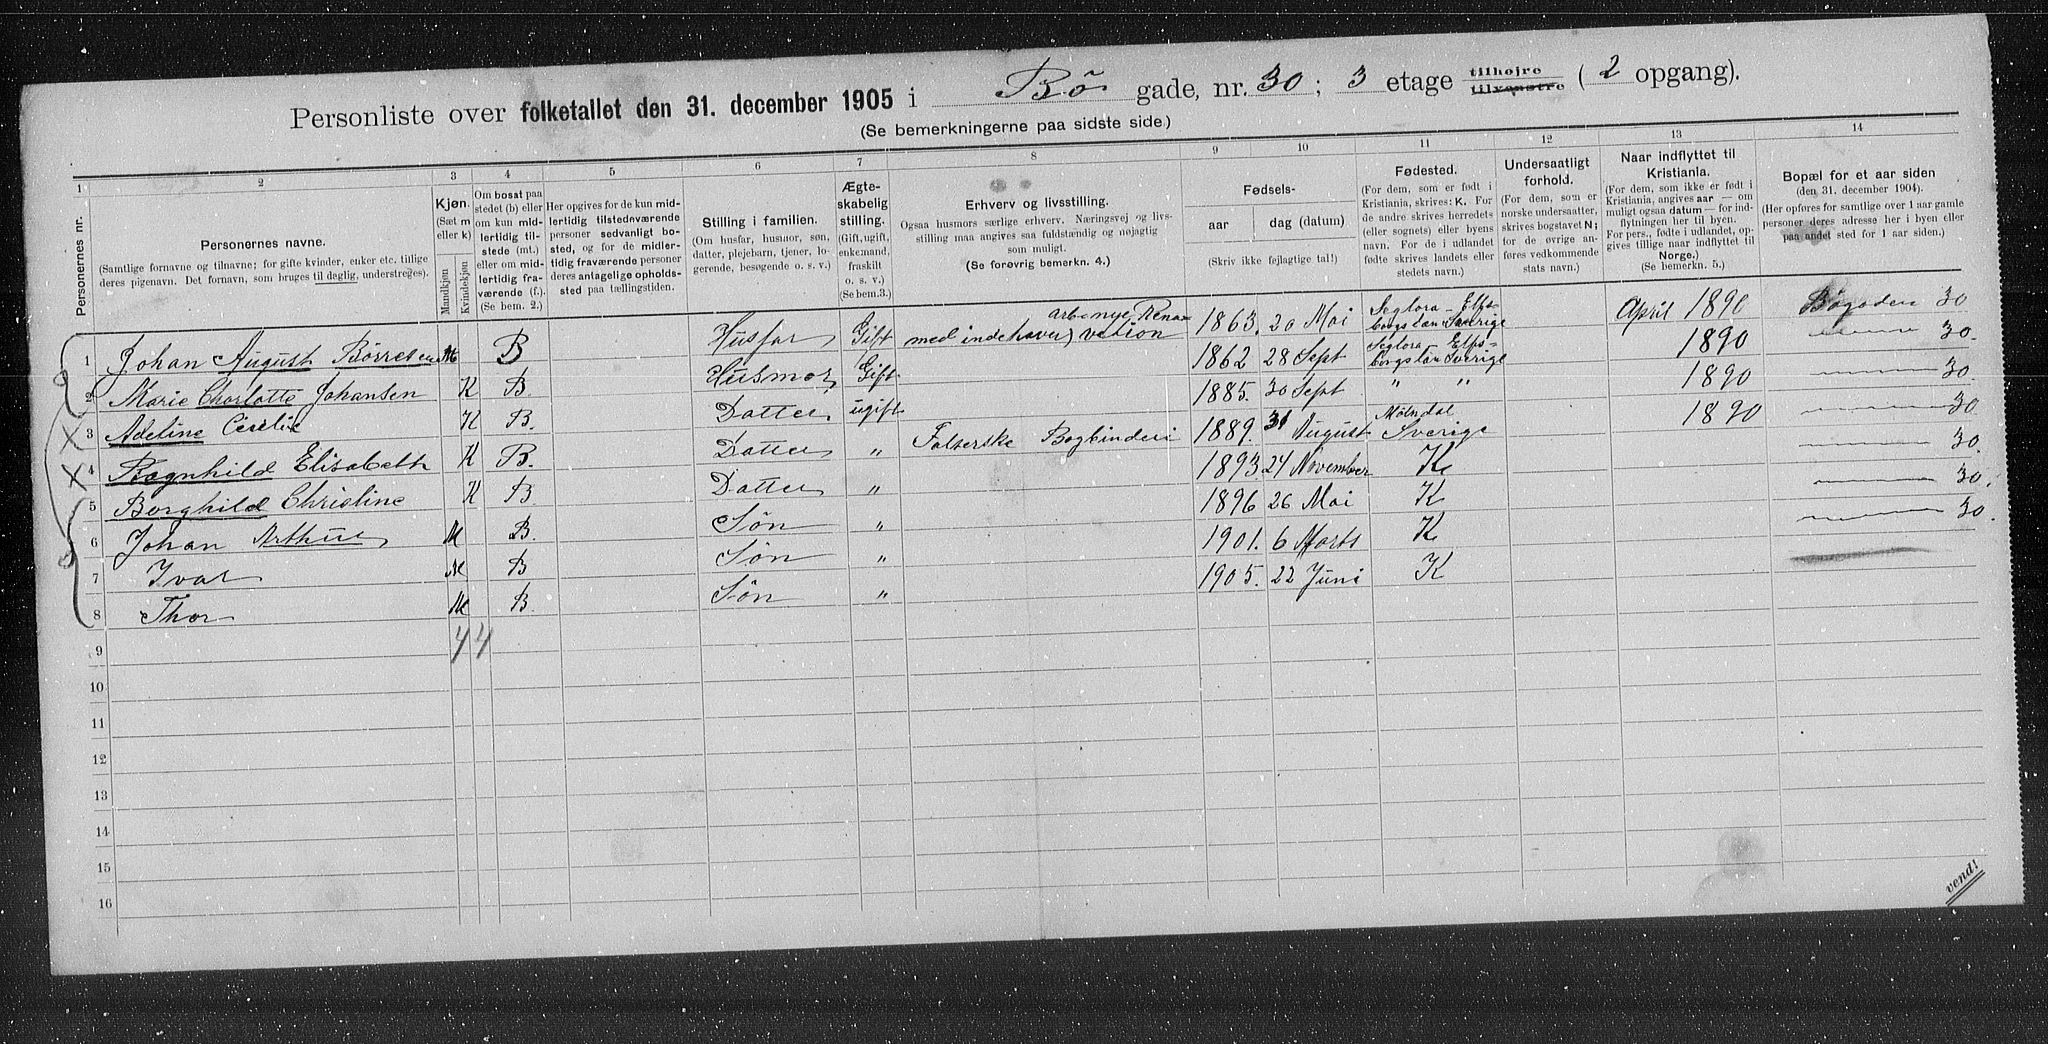 Personliste over folketallet den 31. december 1905 i Bö gade, nr. 30; 3 etage tilhøjre tilvenstre (2 opgang).
(Se bemerkningerne paa sidste side.)
1 2 3 4 5 6 7 8 9 10 11 12 13 14
Personernes nr.
Personernes navne.
(Samtlige fornavne og tilnavne; for gifte kvinder, enker etc. tillige deres pigenavn. Det fornavn, som bruges til deglig, understreges).
Kjøn. (Sæt m eller k) Mandkjøn Kvindekjøn
Om bosat paa stedet (b) eller om kun midlertidig tilstede (mt.) eller om midlertidig fraværende (f.). (Se bem. 2.)
Her opgives for de kun midlertidig tilstedværende personer sedvanligt bosted, og for de midlertidig fraværende personer deres antagelige opholdssted paa tællingstiden.
Stilling i familien. (Om husfar, husmor, søn, datter, plejebarn, tjener, logerende, besøgende o. s. v.)
Ægteskabelig stilling. (Gift, ugift, enkemand, fraskilt o. s. v.) (Se bem. 3.)
Erhverv og livsstilling.
Ogsaa husmors særlige erhverv. Næringsvej og livsstilling maa angives saa fuldstændig og nøjagtig som muligt.
(Se forøvrig bemerkn. 4.)
Fødsels-
aar dag (datum)
(Skriv ikke fejlagtige tal!)
Fødested. (For dem, som er født i Kristiania, skrives: K. For de andre skrives herredets (eller sognets) eller byens navn. For de i udlandet fødte skrives landets eller stedets navn.)
Undersaatligt forhold. (For dem, som er norske undersaatter, skrives bogstavet N; for de øvrige anføres vedkommende stats navn.)
Naar indflyttet til Kristiania. (For dem, som ikke er født i Kristiania, angives aar — om muligt ogsaa datum — for indflytningen her til byen. For pers., fødte i udlandet, opgives tillige naar indflyttet til Norge.) (Se bemerkn. 5.)
Bopæl for et aar siden (den 31. december 1904). (Her opføres for samtlige over 1 aar gamle personer deres adresse her i byen eller paa andet sted for 1 aar siden.)
1 Johan August Börresen M B Husfar Gift med indehaver arb. nye Renovation 1863. 20 Mai Seglora Elfsborgslän Sverige April 1890 Bögaden 30
2 Marie Charlotte Johansen K B. Husmor Gift 1862 28 Sept Seglora Elfsborgslän Sverige 1890 30.
3 Adeline Cecelie K B. Datter ugift 1885. 30 Sept " " 1890 30.
4 Ragnhild Elisabeth K B. Datter " Falserske Bogbinderi 1889. 31 August Mölndal Sverige 1890 30
5 Borghild Christine K B Datter " 1893. 24 November K 30.
6 Johan Arthur M B. Sön " 1896 26 Mai K 30.
7 Ivar M B Sön " 1901. 6 Marts K 30.
8 Thor M B. Sön " 1905. 22 Juni K
9 4 4
10
11
12
13
14
15
16
vend!